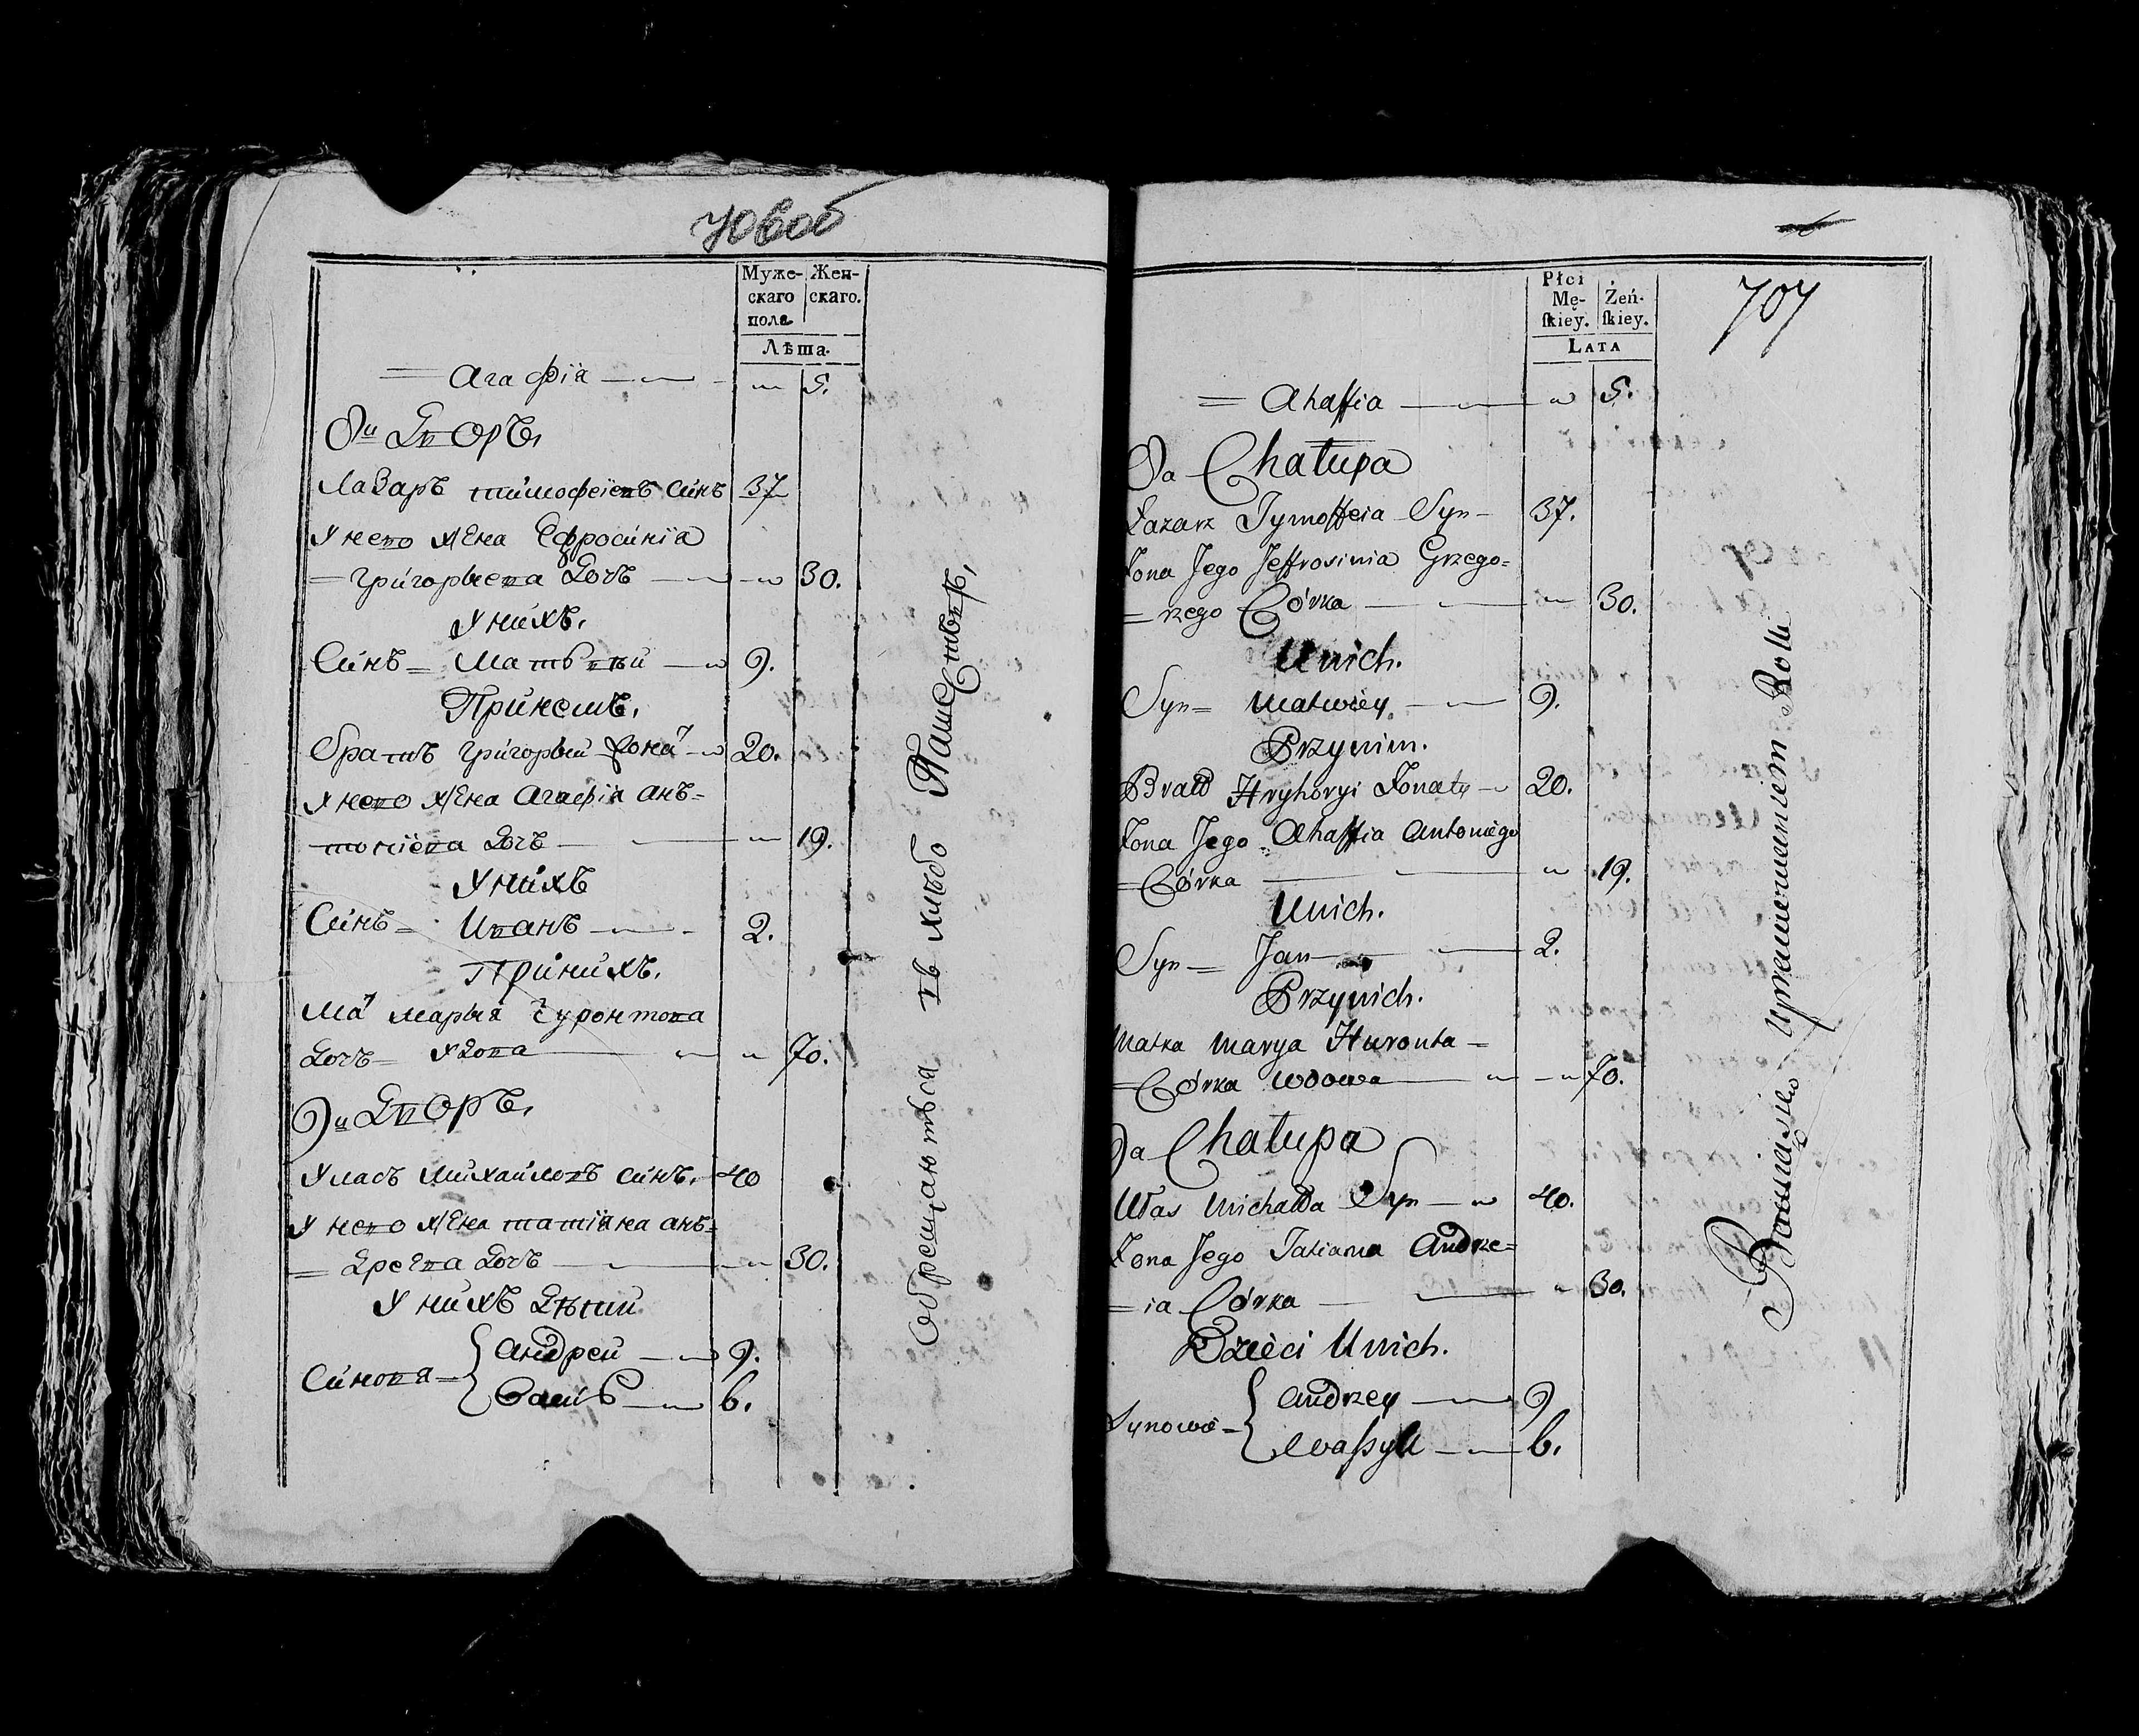 706об
Муже-
скаго
пола
Жен-
скаго.
Лѣта.
= Агафіа 5.
8й Дворъ,
Лазаръ тимофеіевъ синъ 37
У него жЕна Ефросинїа
= григорьева Дочъ 30.
У нихъ,
Синъ = Матвѣй 9.
При немъ,
братъ григорьи 20.
У него жЕна Агафіа анъ=
тонїева Дочъ 19.
У нихъ
Синъ = Иванъ 2.
При нихъ,
Марья
Дочъ = вдова 70.
9й Дворъ,
Уласъ михайловъ синъ, 40
У него жЕна татїана анъ=
= дреева Дочъ 30.
У нихъ Дѣти
Синова = { Андрей 9.
6.
Обрещаютъса въ хлѣбо Паше Ствѣ,
Płci
Mę-
ſkiey.
Żeń-
ſkiey.
LATA
707
= Ahaffia 5.
8a Chałupa
Łazarz Tymoffeia Syn 37.
Żona Jego Jeffrosinia Grzego=
= rzego Córka 30.
Unich.
Syn = Matwiey 9.
Przynim.
Bratt Hryhoryi Żonaty 20.
Żona Jego Ahaffia Antoniego
= Córka 19.
Unich.
Syn = Jan 2.
Przynich.
Matka Marya Huronta =
= Córka wdowa 70.
9a Chałupa
Ułas Michałła Syn 40.
Żona Jego Tatianna Andrze=
= ia Córka 30.
Dzieci Unich.
Synowe = { Andrzey 9
Waſsyll 6.
Bawią sie Uprawowaniem Rolli